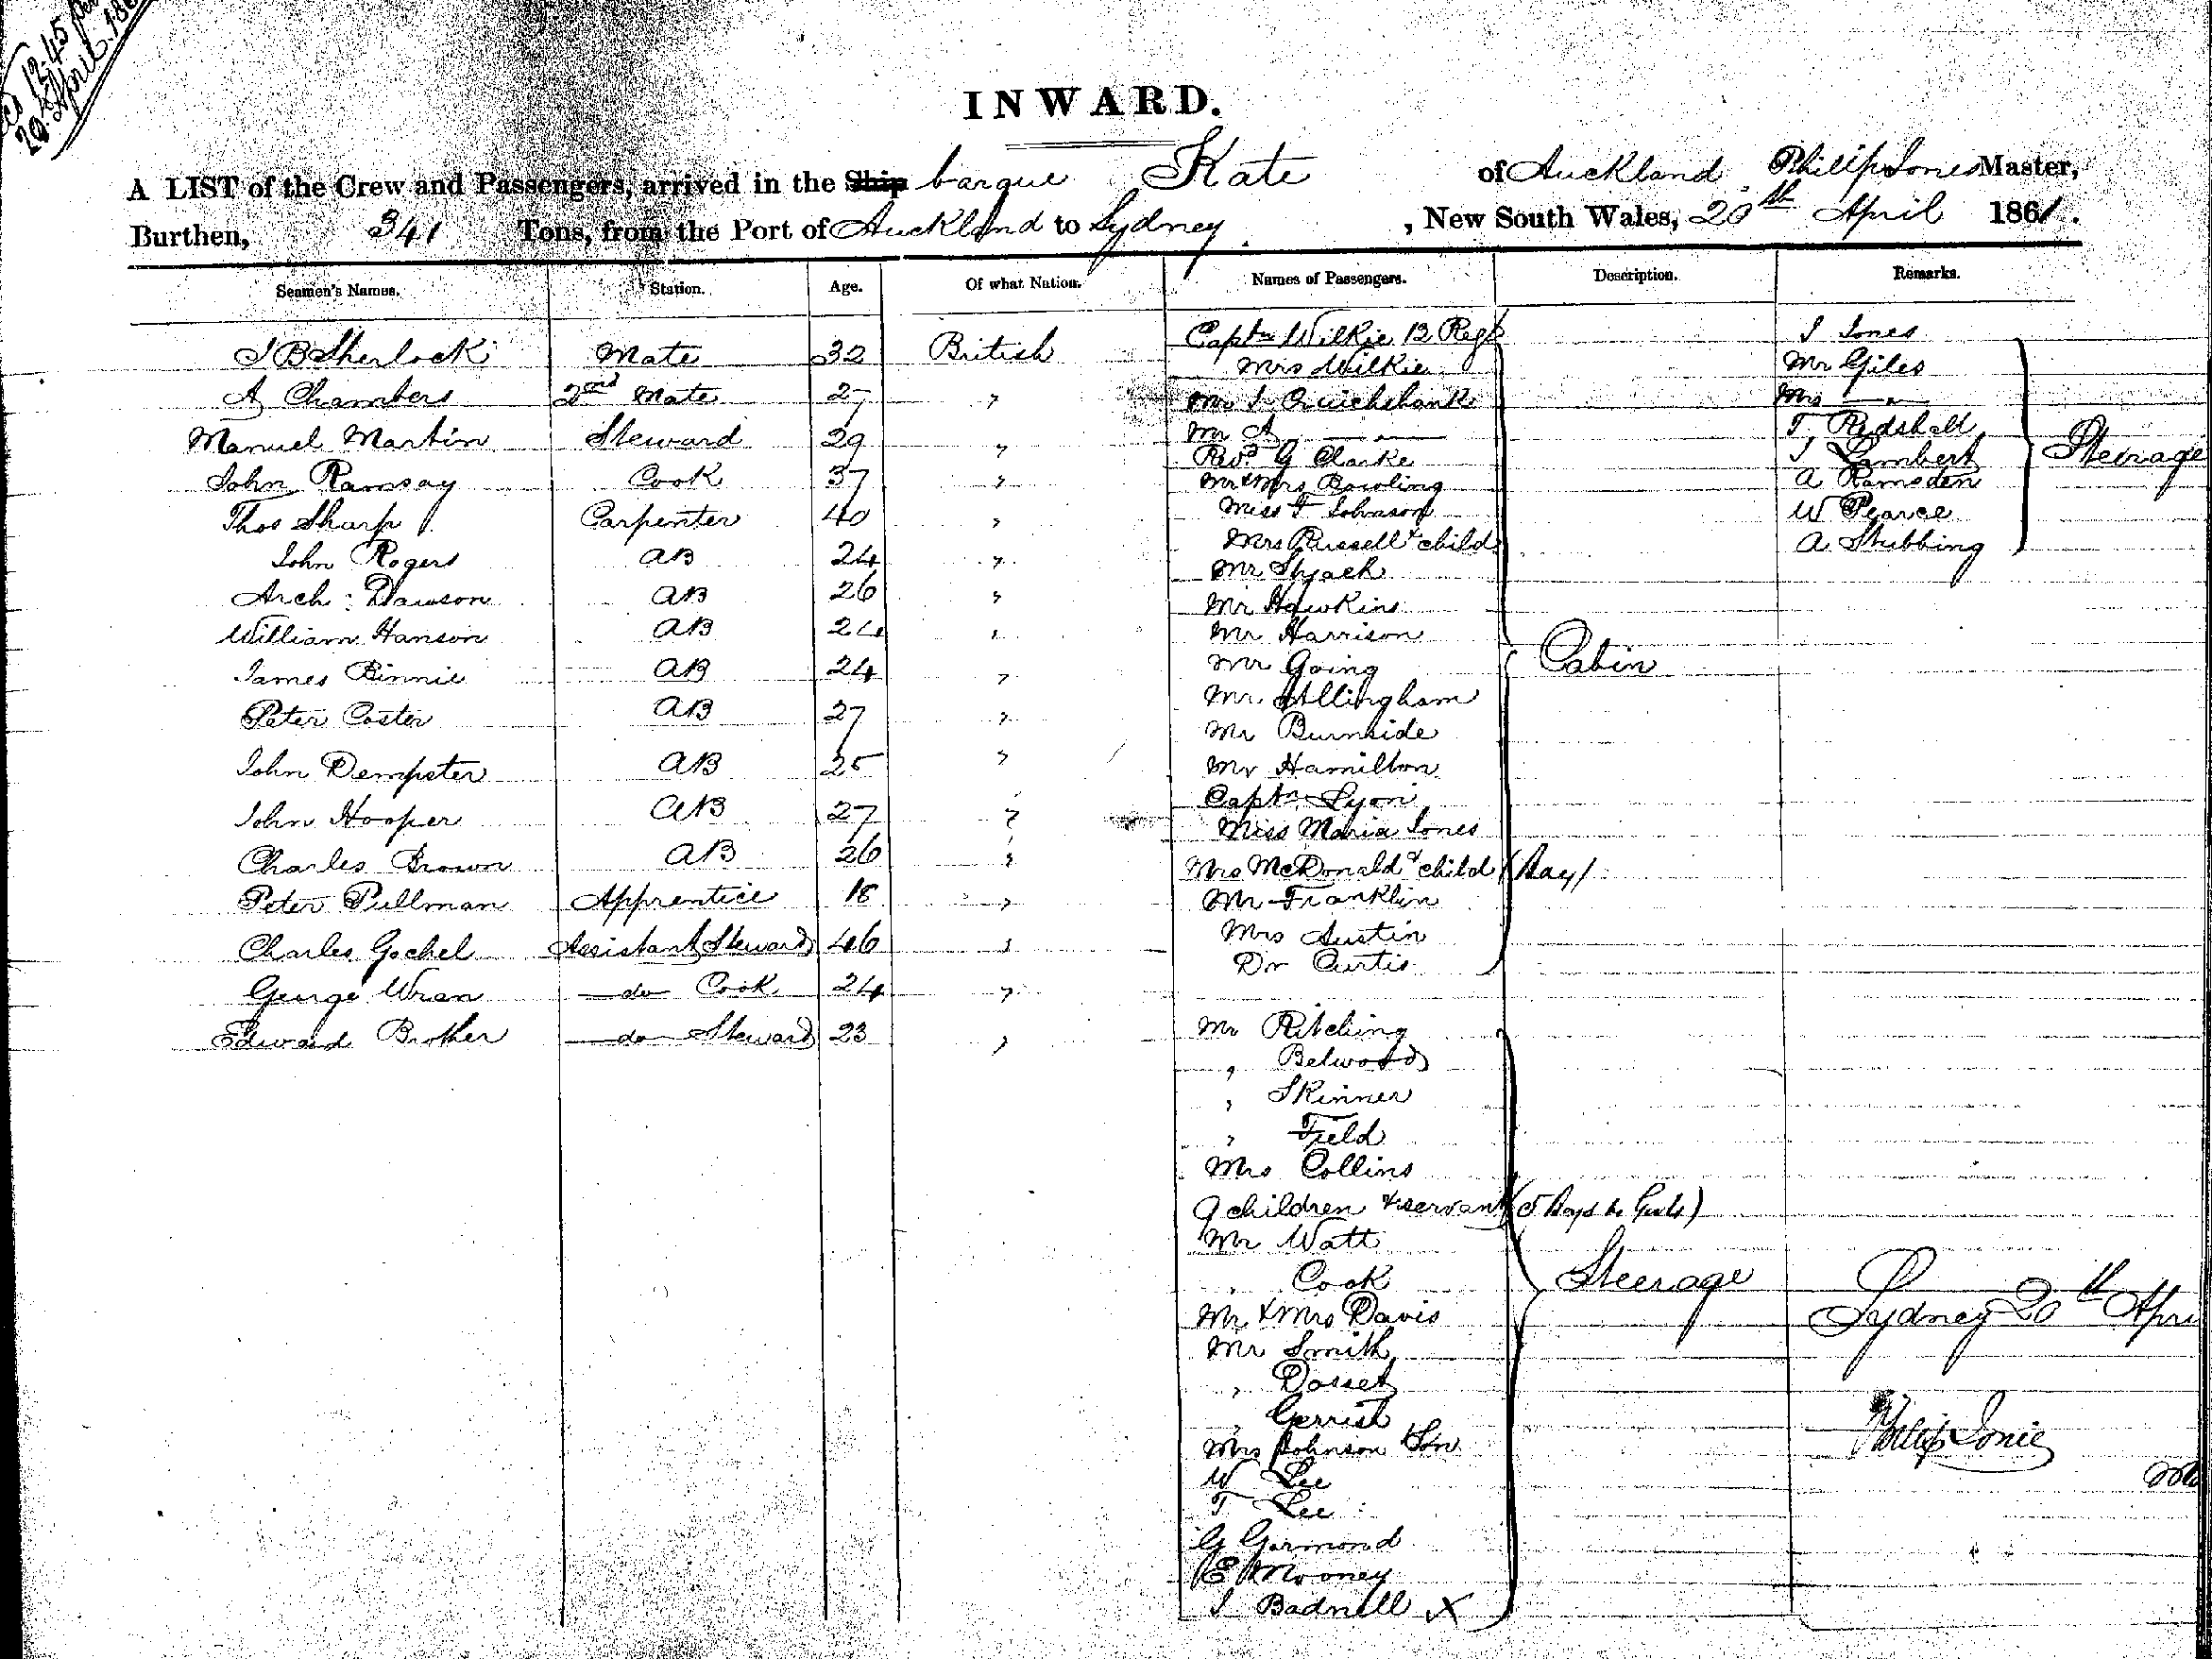 12.45
20 April 186
INWARD.
A LIST of the Crew and Passengers, arrived in the Ship barque Kate of Auckland Philip Jones Master,
Burthen, 341 Tons, from the Port of Auckland to Sydney, New South Wales, 20th April 1861.
Seamen's Names. Station. Age. Of what Nation. Names of Passengers. Description. Remarks.
J B Sherlock Mate 32 British
A Chambers 2nd Mate 27 "
Manuel Martin Steward 29 "
John Ramsay Cook 37 "
Thos Sharp Carpenter 40 "
John Rogers AB 24 "
Arch: Dawson AB 26 "
William Hanson AB 24 "
James Binnie AB 24 "
Peter Coster AB 27 "
John Dempster AB 25 "
John Hooper AB 27 "
Charles Brown AB 26 "
Peter Pullman Apprentice 18 "
Charles Gochel Assistant Steward 46 "
George Wran do Cook 24 "
Edward Brother do Steward 23 "
Captn Wilkie 12 Regt
Mrs Wilkie
Mr J Cruickshank
Mr A "
Revd G Clarke
Mr & Mrs Bowling
Miss F Johnson
Mrs Russell & child
Mr
Mr Hawkins
Mr Harrison
Mr Going
Mr Allingham
Mr Burnside
Mr Hamilton
Captn Lyon
Miss Maria Jones
Mrs McDonald & child (Boy)
Mr Franklin
Mrs Austin
Dr Curtis
Cabin
Mr Ritching
" Belwood
" Skinner
" Field
Mrs Collins
9 children & servant (5 Boys 4 Girls)
Mr Watt
" Cook
Mr & Mrs Davis
Mr Smith
" Dosset
" Gerrish
Mrs Johnson & Son
W Lee
T Lee
G Garmond
E Mooney
J Badnall X
Steerage
J Jones
Mr Giles
Mrs "
T Redshall
J Lambert
A Ramsden
W Pearce
A Stubbing
Steerage
Sydney 20th Apri
Philip Jones